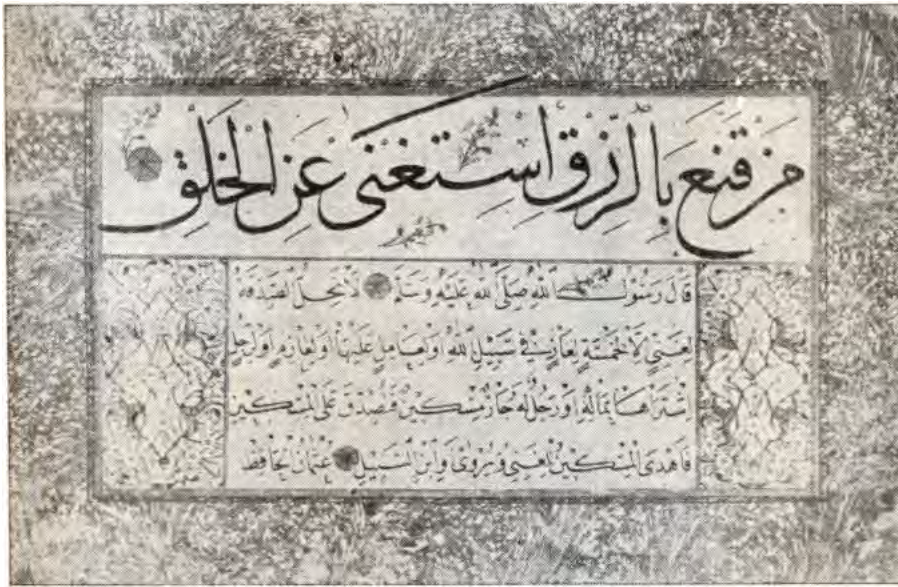 مَنْ قَنَعَ بِالرِّزْقِ اسْتَغْنَى عَنِ الْخَلْقِ
قَالَ رَسُولُ اللّٰهِ صَلَّى اللّٰهُ عَلَيْهِ وَسَلَّمَ لَا يَحِلُّ الصَّدَقَةُ
لِغَنِيٍّ إِلَّا لِخَمْسَةٍ لِغَازٍ فِي سَبِيلِ اللّٰهِ أَوْ لِعَامِلٍ عَلَيْهَا أَوْ لِغَارِمٍ أَوْ لِرَجُلٍ
اشْتَرَاهَا بِمَالِهِ أَوْ رَجُلٍ لَهُ جَارٌ مِسْكِينٌ فَتُصُدِّقَ عَلَى الْمِسْكِينِ
فَأَهْدَى الْمِسْكِينُ لِغَنِيٍّ وَيُرْوَى وَابْنِ السَّبِيلِ عُثْمَانُ الْحَافِظُ